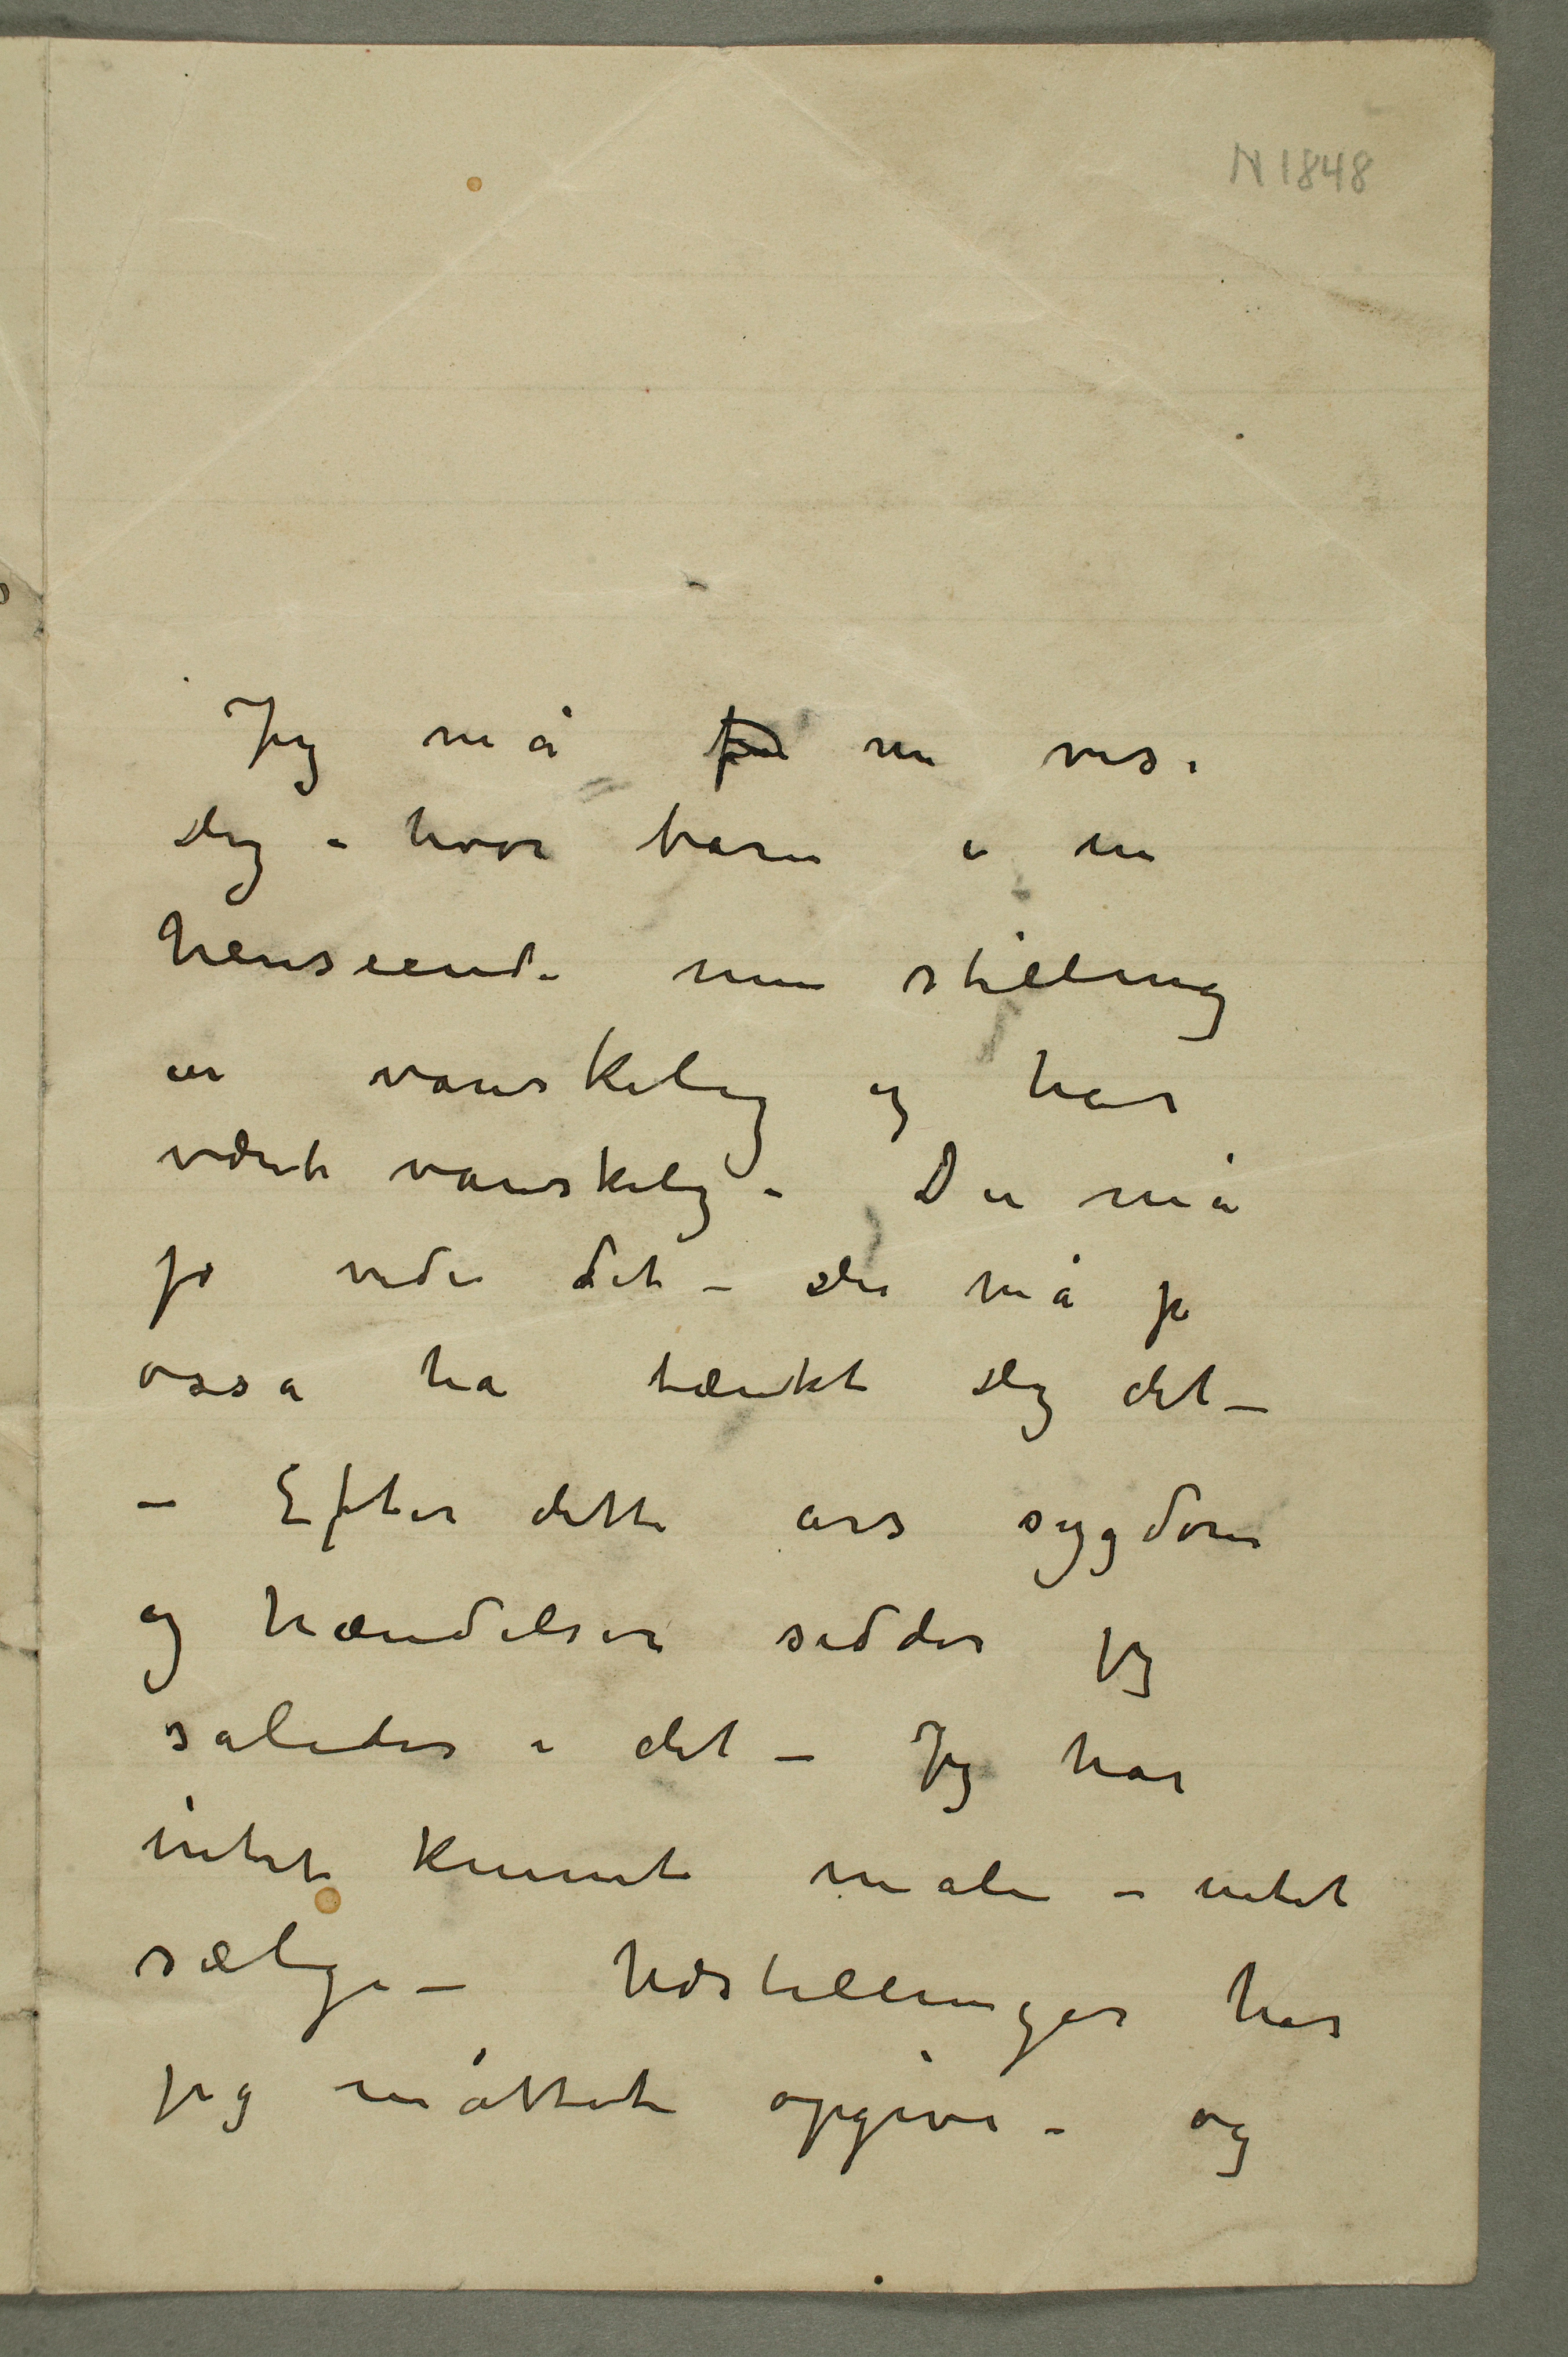 N 1848
Jeg må nu vise
Dig – hvor bare i en
henseende min stilling
er vanskelig og har
været vanskelig – Du må
jo vide det – Du må jo
osså ha tænkt Dig det –
– Efter dette års sygdom
og hændelser sidder jeg
således i det – Jeg har
intet kunnet male – intet
sælge – Udstillinger har
jeg måttet opgive – og